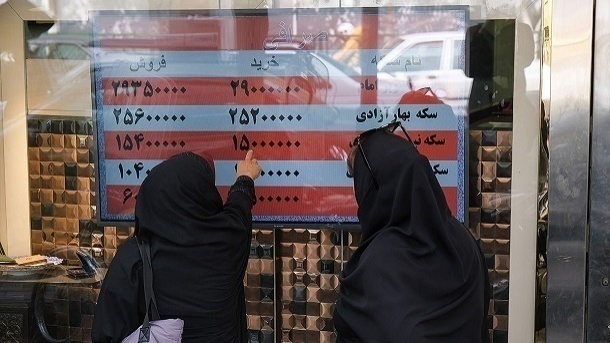 صرافی
نام سکه خرید فروش
۲۹۰۰۰۰۰۰ ۲۹۳۵۰۰۰۰
سکه بهار آزادی ۲۵۲۰۰۰۰۰ ۲۵۶۰۰۰۰۰
سکه ۱۵۰۰۰۰۰۰ ۱۵۴۰۰۰۰۰
سکه